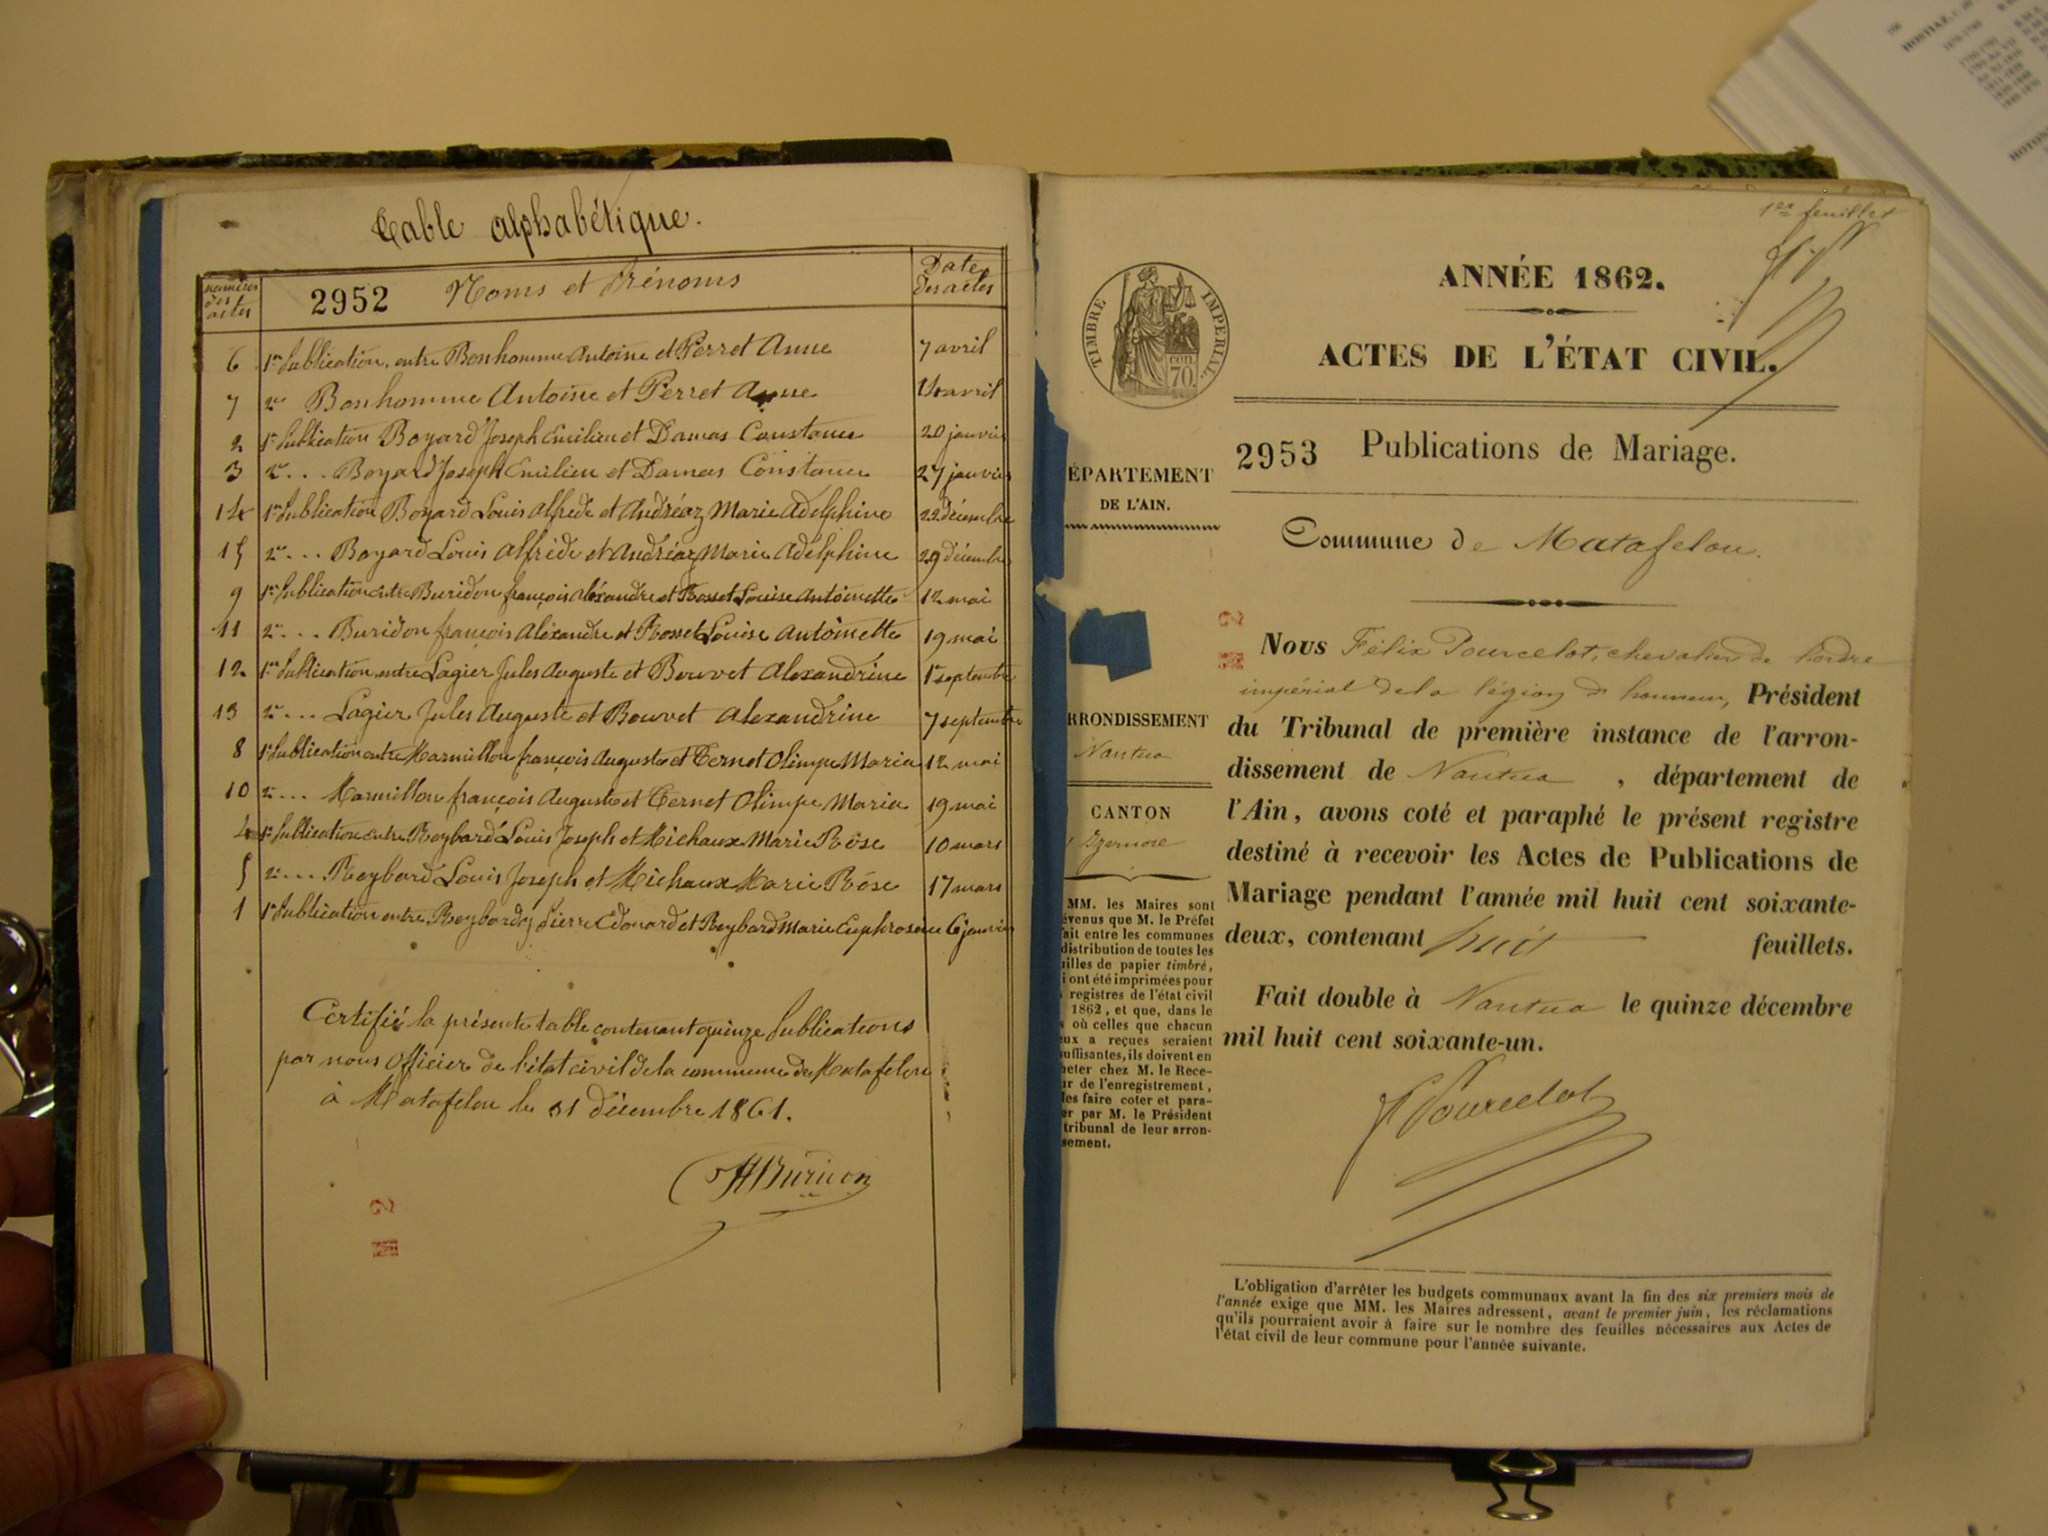 Table alphabétique.
numéros des actes
2952 Noms et Prénoms
Date des actes
6 1re Publication, entre Bonhomme Antoine et Perret Anne 7 avril
7 2e Bonhomme Antoine et Perret Anne 14 avril
2 1re Publication Boyard Joseph Emilien et Damas Constance 20 janvier
3 2e ... Boyard Joseph Emilien et Damas Constance 27 janvier
14 1re Publication Boyard Louis Alfrede et Andréaz Marie Adelphine 22 décembre
15 2e ... Boyard Louis Alfrède et Andréaz Marie Adelphine 29 décembre
9 1re Publication entre Buridon françois Aléxandre et Rosset Louise Antoinette 12 mai
11 2e ... Buridon françois Aléxandre et Rosset Louise Antoinette 19 mai
12 1re Publication entre Lagier Jules Auguste et Bouvet Alexandrine 1er septembre
13 2e ... Lagier Jules Auguste et Bouvet Alexandrine 7 septembre
8 1re Publication entre Marmillon françois Auguste et Ternet Olimpe Maria 12 mai
10 2e ... Marmillon françois Auguste et Ternet Olimpe Maria 19 mai
4 1re Publication entre Reybard Louis Joseph et Michaux Marie Rôse 10 mars
5 2e ... Reybard Louis Joseph et Michaux Marie Rôse 17 mars
1 1re Publication entre Reybard Pierre Edouard et Reybard Marie Euphrosine 6 janvier
Certifié la présente table contenant quinze Publications
par nous Officier de l'état civil de la commune de Matafelon
à Matafelon le 31 décembre 1861.
Buridon
1er feuillet
ANNÉE 1862.
ACTES DE L'ÉTAT CIVIL.
TIMBRE IMPERIAL
cen. 70.
2953 Publications de Mariage.
ÉPARTEMENT
DE L'AIN.
Commune de Matafelon.
Nous Félix Pourcelot, chevalier de l'ordre
impérial de la légion d'honneur, Président
du Tribunal de première instance de l'arron-
dissement de Nantua, département de
l'Ain, avons coté et paraphé le présent registre
destiné à recevoir les Actes de Publications de
Mariage pendant l'année mil huit cent soixante-
deux, contenant huit feuillets.
Fait double à Nantua le quinze décembre
mil huit cent soixante-un.
Pourcelot
RRONDISSEMENT
Nantua
CANTON
Izernore
MM. les Maires sont
évenus que M. le Préfet
ait entre les communes
distribution de toutes les
illes de papier timbré,
i ont été imprimées pour
registres de l'état civil
1862, et que, dans le
où celles que chacun
ux a reçues seraient
uffisantes, ils doivent en
heter chez M. le Rece-
ur de l'enregistrement,
les faire coter et para-
er par M. le Président
tribunal de leur arron-
sement.
L'obligation d'arrêter les budgets communaux avant la fin des six premiers mois de
l'année exige que MM. les Maires adressent, avant le premier juin, les réclamations
qu'ils pourraient avoir à faire sur le nombre des feuilles nécessaires aux Actes de
l'état civil de leur commune pour l'année suivante.